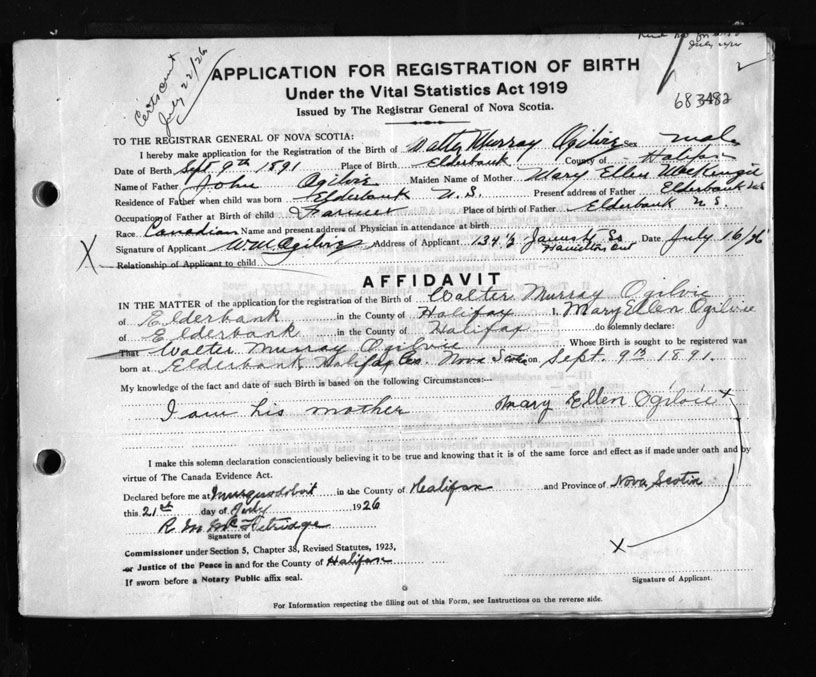 Cert sent
July 22/26
683482
APPLICATION FOR REGISTRATION OF BIRTH
Under the Vital Statistics Act 1919
Issued by The Registrar General of Nova Scotia.
TO THE REGISTRAR GENERAL OF NOVA SCOTIA:
I hereby make application for the Registration of the Birth of Murray Ogilvie Sex male
Date of Birth Sept. 9th 1891 Place of Birth Elderbank County of Halifax
Name of Father John Ogilvie Maiden Name of Mother Mary Ellen MacKenzie
Residence of Father when child was born Elderbank N.S. Present address of Father Elderbank N.S.
Occupation of Father at Birth of child Farmer Place of birth of Father Elderbank N S.
Race Canadian Name and present address of Physician in attendance at birth
X Signature of Applicant W.M. Ogilvie Address of Applicant 134½ St. So Hamilton Ont Date July 16/26
Relationship of Applicant to child
AFFIDAVIT
IN THE MATTER of the application for the registration of the Birth of Walter Murray Ogilvie
of Elderbank in the County of Halifax I, Mary Ellen Ogilvie
of Elderbank in the County of Halifax do solemnly declare:
That Walter Murray Ogilvie Whose Birth is sought to be registered was
born at Elderbank Halifax Co. Nova Scotia on Sept. 9th 1891.
My knowledge of the fact and date of such Birth is based on the following Circumstances:—
I am his mother Mary Ellen Ogilvie x
I make this solemn declaration conscientiously believing it to be true and knowing that it is of the same force and effect as if made under oath and by
virtue of The Canada Evidence Act.
Declared before me at Musquodoboit in the County of Halifax and Province of Nova Scotia
this 21st day of July 1926
R. M. McFetridge
Signature of
Commissioner under Section 5, Chapter 38, Revised Statutes, 1923,
or Justice of the Peace in and for the County of Halifax
X
If sworn before a Notary Public affix seal.
Signature of Applicant.
For Information respecting the filling out of this Form, see Instructions on the reverse side.